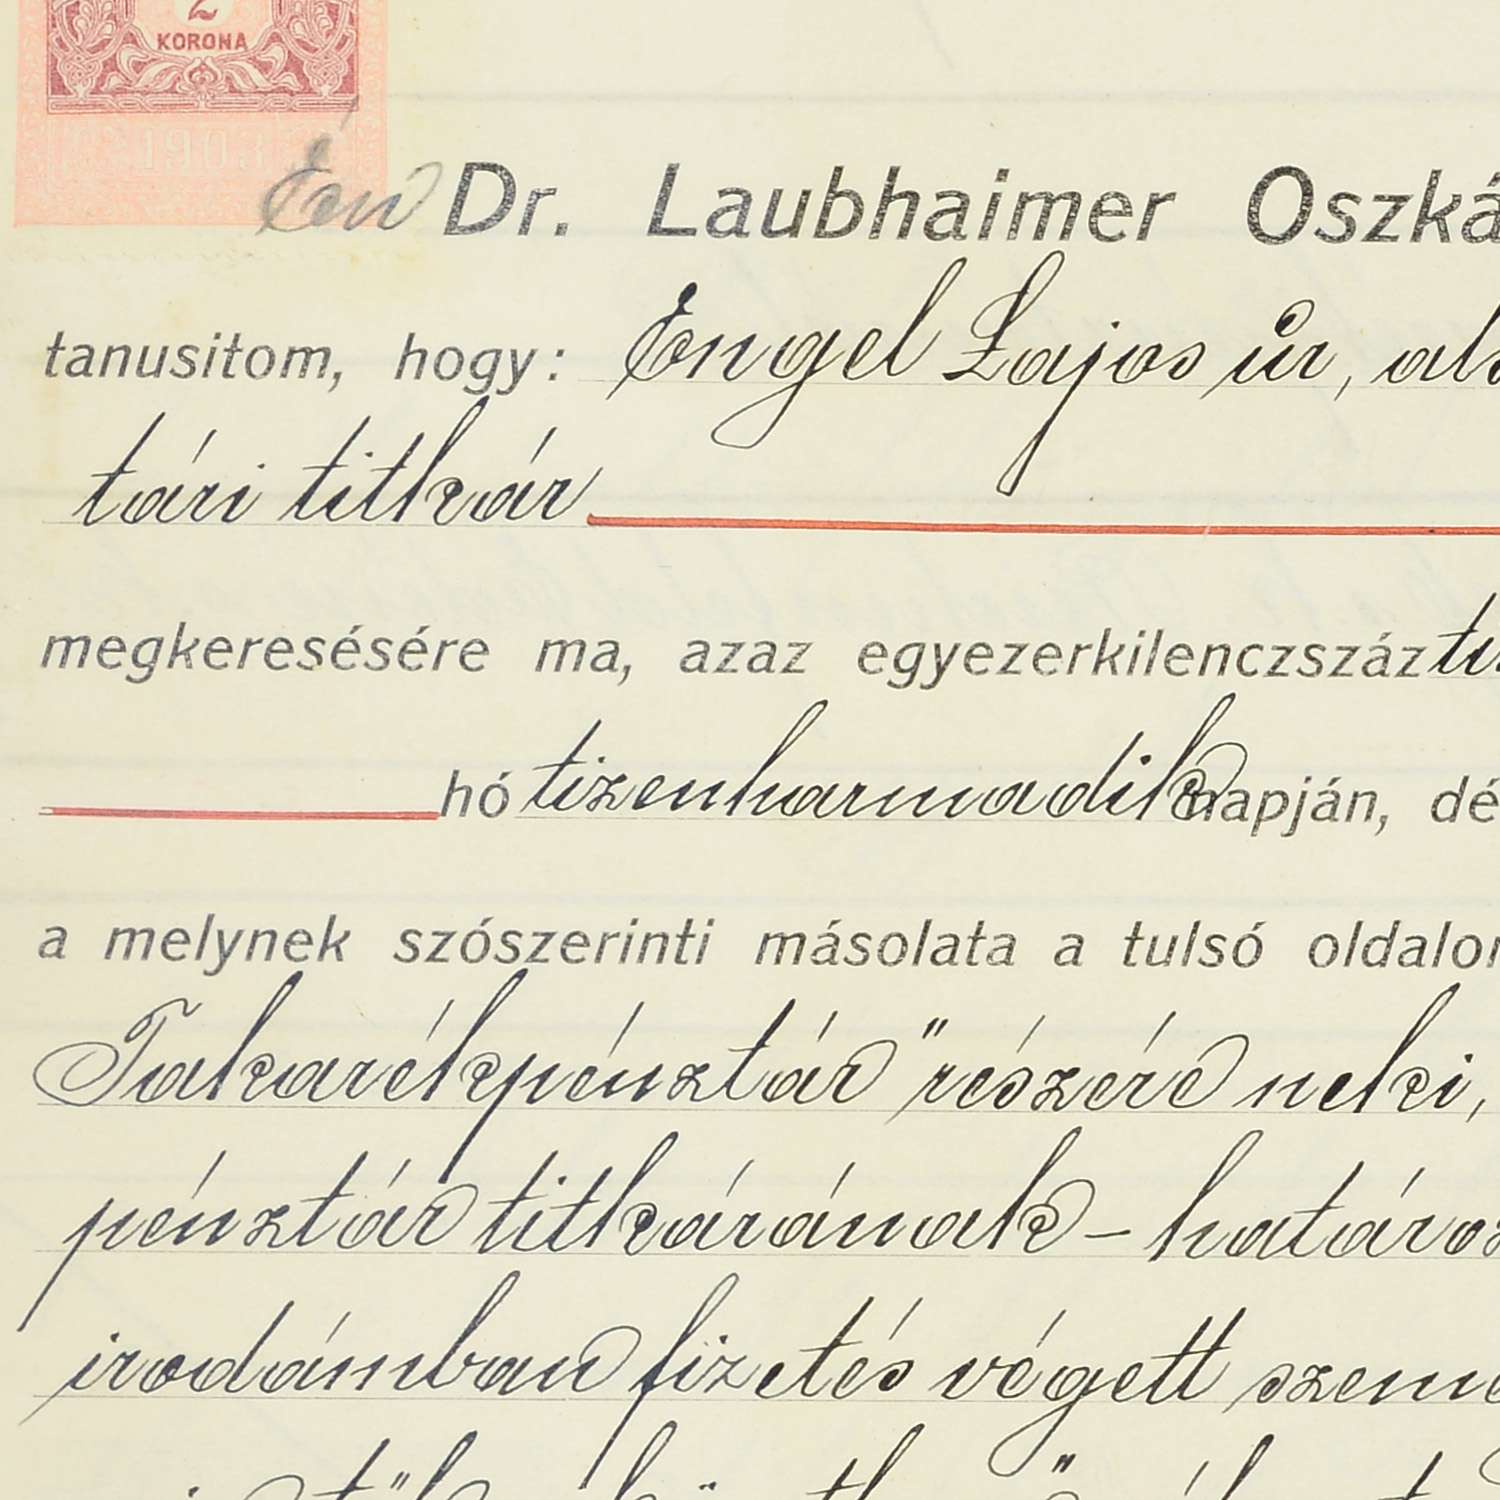 2
KORONA
1903
Én Dr. Laubhaimer Oszká
tanusitom, hogy: Engel Lajos úr, als
tári titkár
megkeresésére ma, azaz egyezerkilenczszáz ti
hó tizenharmadik napján, dé
a melynek szószerinti másolata a tulsó oldalon
Takarékpénztár" részére neki,
pénztár titkárának – határoz
irodámban fizetés végett szemé